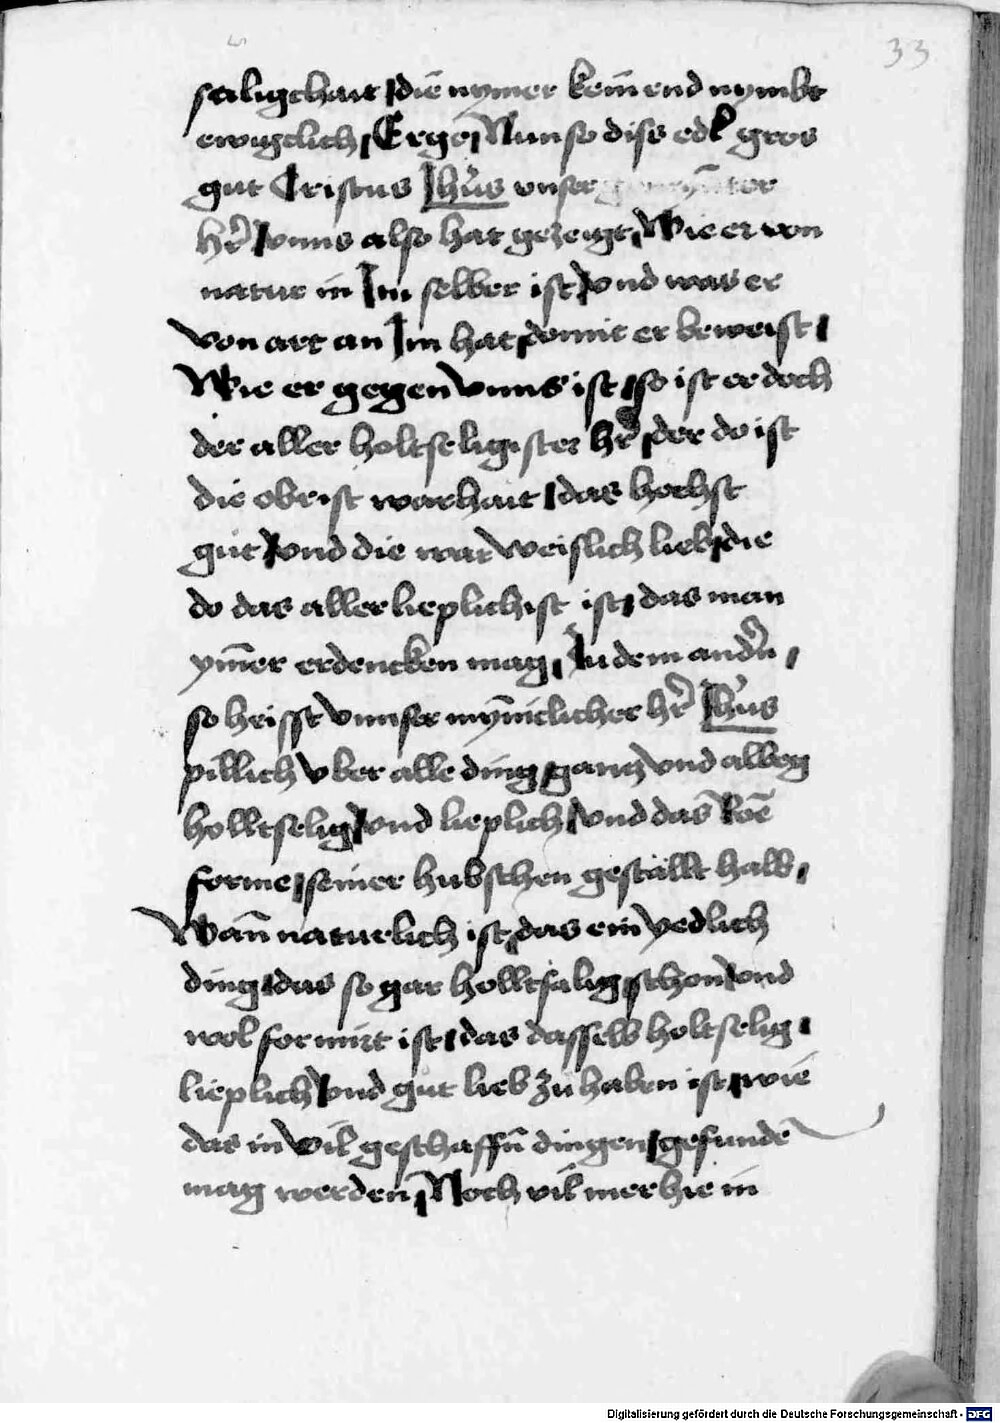 33
saligchait / die nymer kein end nymbt
ewigclich / Ergo / Nun so diss edl gros
gut Cristus Jhus vnser
hr / vnns also hat gezeigt / Wie er von
natur in Im selber ist / vnd was er
von art an Im hat / domit er beweist /
Wie er gegen vnns ist / so ist er doch
der aller holtseligister hr / der do ist
die obrist warhait / das hochst
gut / vnd die war weislich lieb / die
do das allerlieplichist ist / das man
ymer erdencken mag / In dem andrn /
so heisst vnnser mynnclicher hr Jhus
pillich vber alle ding / gantz vnd allweg
holltselig / vnd lieplich / vnd das
forme / seiner hubschen gestallt halb /
Wann naturlich ist / das ein yedlich
ding / das so gar holltsalig / schon / vnd
wol formirt ist / das dasselb holtselig /
lieplich / vnd gut lieb zu haben ist / wie
das in vil geschaffn dingen / gefunden
mag werden / Noch vil mer hie in
Digitalisierung gefördert durch die Deutsche Forschungsgemeinschaft - DFG